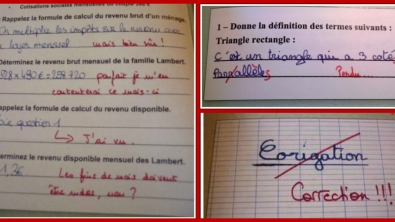 Cotisations sociales mensuelles
Rappelez la formule de calcul du revenu brut d'un ménage.
On multiplie les impôts sur le revenu avec
le loyer mensuel mais bien sûr !
Déterminez le revenu brut mensuel de la famille Lambert.
parfait je m'en
contenterai ce mois-ci
Rappelez la formule de calcul du revenu disponible.
question 1
↳ J'ai vu.
Déterminez le revenu disponible mensuel des Lambert.
1,36 Les fins de mois doivent
être rudes, non ?
1 – Donne la définition des termes suivants :
Triangle rectangle :
C'est un triangle qui a 3 cotés
parallèles Perdu...
Corigation
Correction !!!